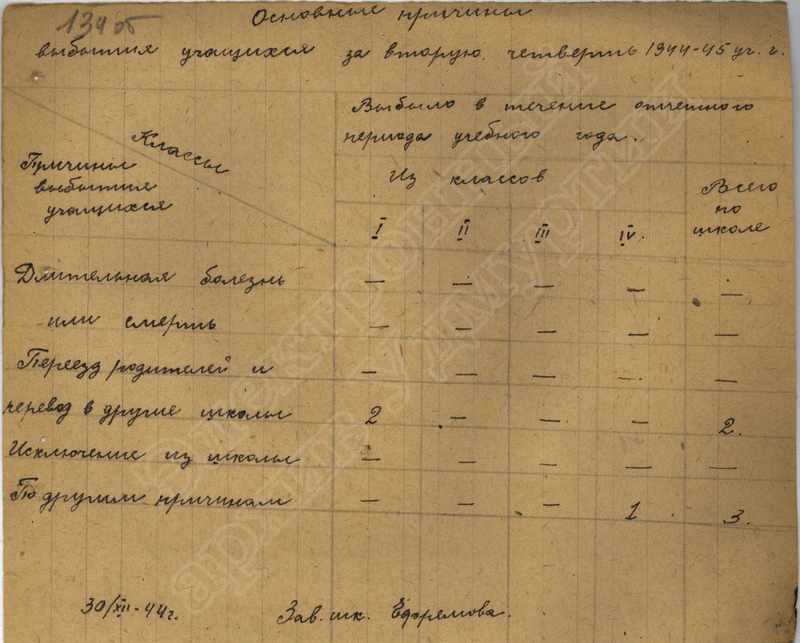 134 об
Основные причины
выбытия учащихся за вторую четверть 1944-45 уч. г.
Классы
Причины
выбытия
учащихся
Выбыло в течение отчетного
периода учебного года.
Из классов
Всего
по
школе
I II III IV.
Длительная болезнь — — — — —
или смерть — — — — —
Переезд родителей и — — — — —
перевод в другие школы 2 — — — 2.
Исключение из школы — — — — —
По другим причинам — — — 1 3.
30/XII-44г. Зав. шк. Ефремова.